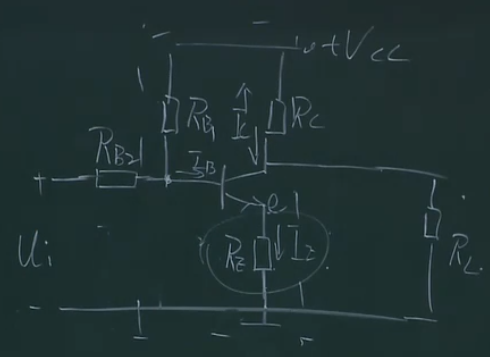 +Vcc
RB1
Ic
Rc
RB2
IB
+
e
Ui
RE
IE
RL
-